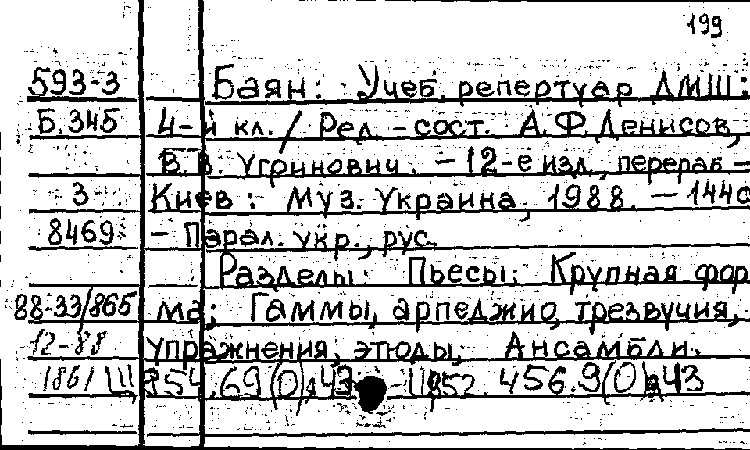 199
593-3 Баян: Учеб. репертуар ДМШ:
Б.345 4-й кл. / Ред.-сост. А.Ф.Денисов,
В.В. Угринович. - 12-е изд., перераб -
3 Киев: Муз. Украина, 1988. - 144с
8469 - Парал. укр., рус.
Разделы: Пьесы; Крупная фор
88-33/865 ма; Гаммы, арпеджио, трезвучия,
12-88 упражнения, этюды; Ансамбли.
186/ 954.69(0)я43 456.9(0)я43